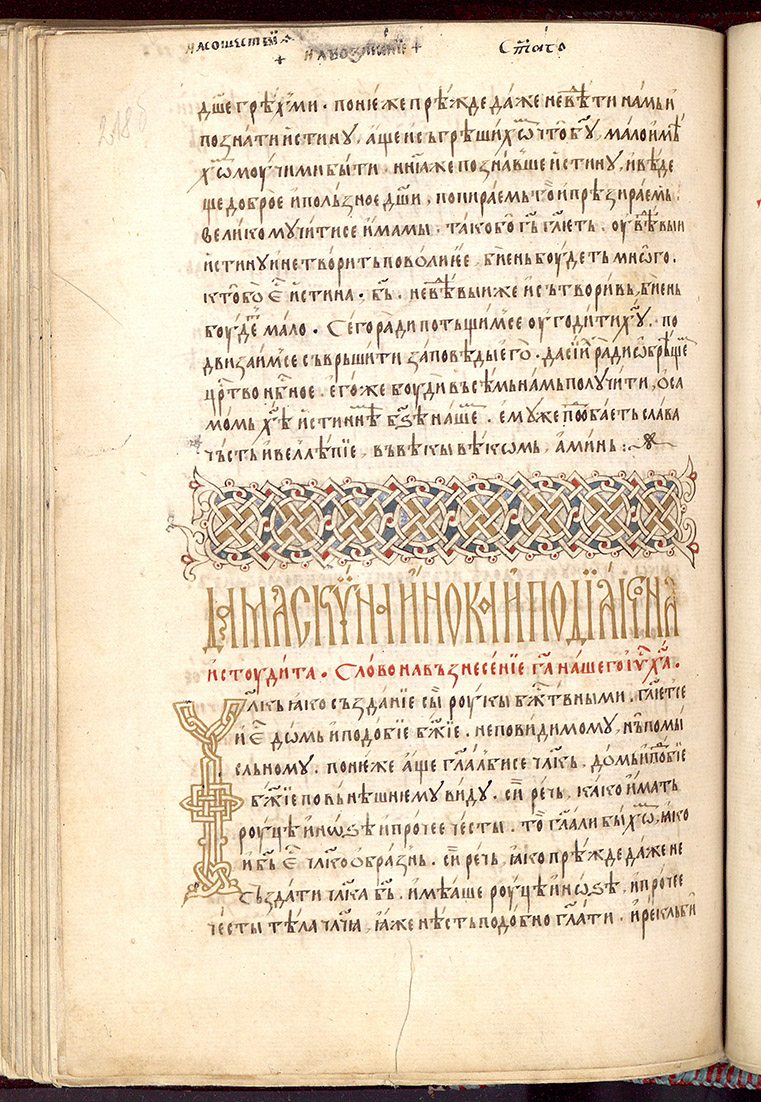 на сошьствїе + на възнⷭ҇нїе + ст҃аго
218б
дш҃е грѣхми · понꙗже прѣжде даже не вѣⷣти намь и
познати истинꙋ, аще и съгрѣшихѡⷨ что бꙋ҃, мало имѣ
хѡⷨ мꙋчими быти · нн҃ꙗ же познавше истинꙋ, и вѣде
ще доброе и пользное дш҃и, попираемь то и прѣзираемь,
велико мꙋчитисе имамы, тако бо гь҃ гл҃еть · ꙋвѣⷣвыи
истинꙋ и не творить по волы ее, бїень бꙋдеть многѡ ·
кто бо е҃ истина · бь҃ · не вѣⷣвыи же и сътворивь, бїень
бꙋдеⷮ мало · Сего ради потьщимсе ꙋгодити хꙋ҃ · по
двизаимсе съврьшити заповѣды его · да сиⷯ ради ѡбрѣщеⷨ
црⷭ҇тво нбⷭ҇ное · егоже бꙋди вьсѣмь намь полꙋчити, ѡ са
момь хѣ҃ истиннѣⷨ бѕ҃ѣ нашеⷨ · емꙋже пⷣобаеть слава
чьсть и велⷧѣпїе, въ вѣкы вѣкѡмь, аминь :
Дамаскүна инока и подїакона
и стꙋдита · Слово на възнесенїе га҃ нашего іу҃ ха҃ ·
Ч҃лкь ꙗко създанїе сы рꙋкы бжⷭ҇твными · гл҃етсе
и е҃ домь и подобїе бж҃їе · неповидимомꙋ, нь помы
сльномꙋ · понеже аще гл҃алѡⷨ бисе чл҃кь, домь и поⷣбїе
бж҃їе по вьнѣшнемꙋ видꙋ · сиⷬ҇ речь, како имать
рꙋцѣ и нѡѕѣ и прочее чести · то гл҃али быхѡⷨ, ꙗко
и бь҃ е҃ чл҃кообразнь · сиⷬ҇ речь, ꙗко прѣжде даже не
създати чл҃ка бь҃ · имѣаше рꙋцѣ и нѡѕѣ, и прочее
чести тѣла чл҃ча, ꙗже нѣсть подобно гл҃ати · и рекль би